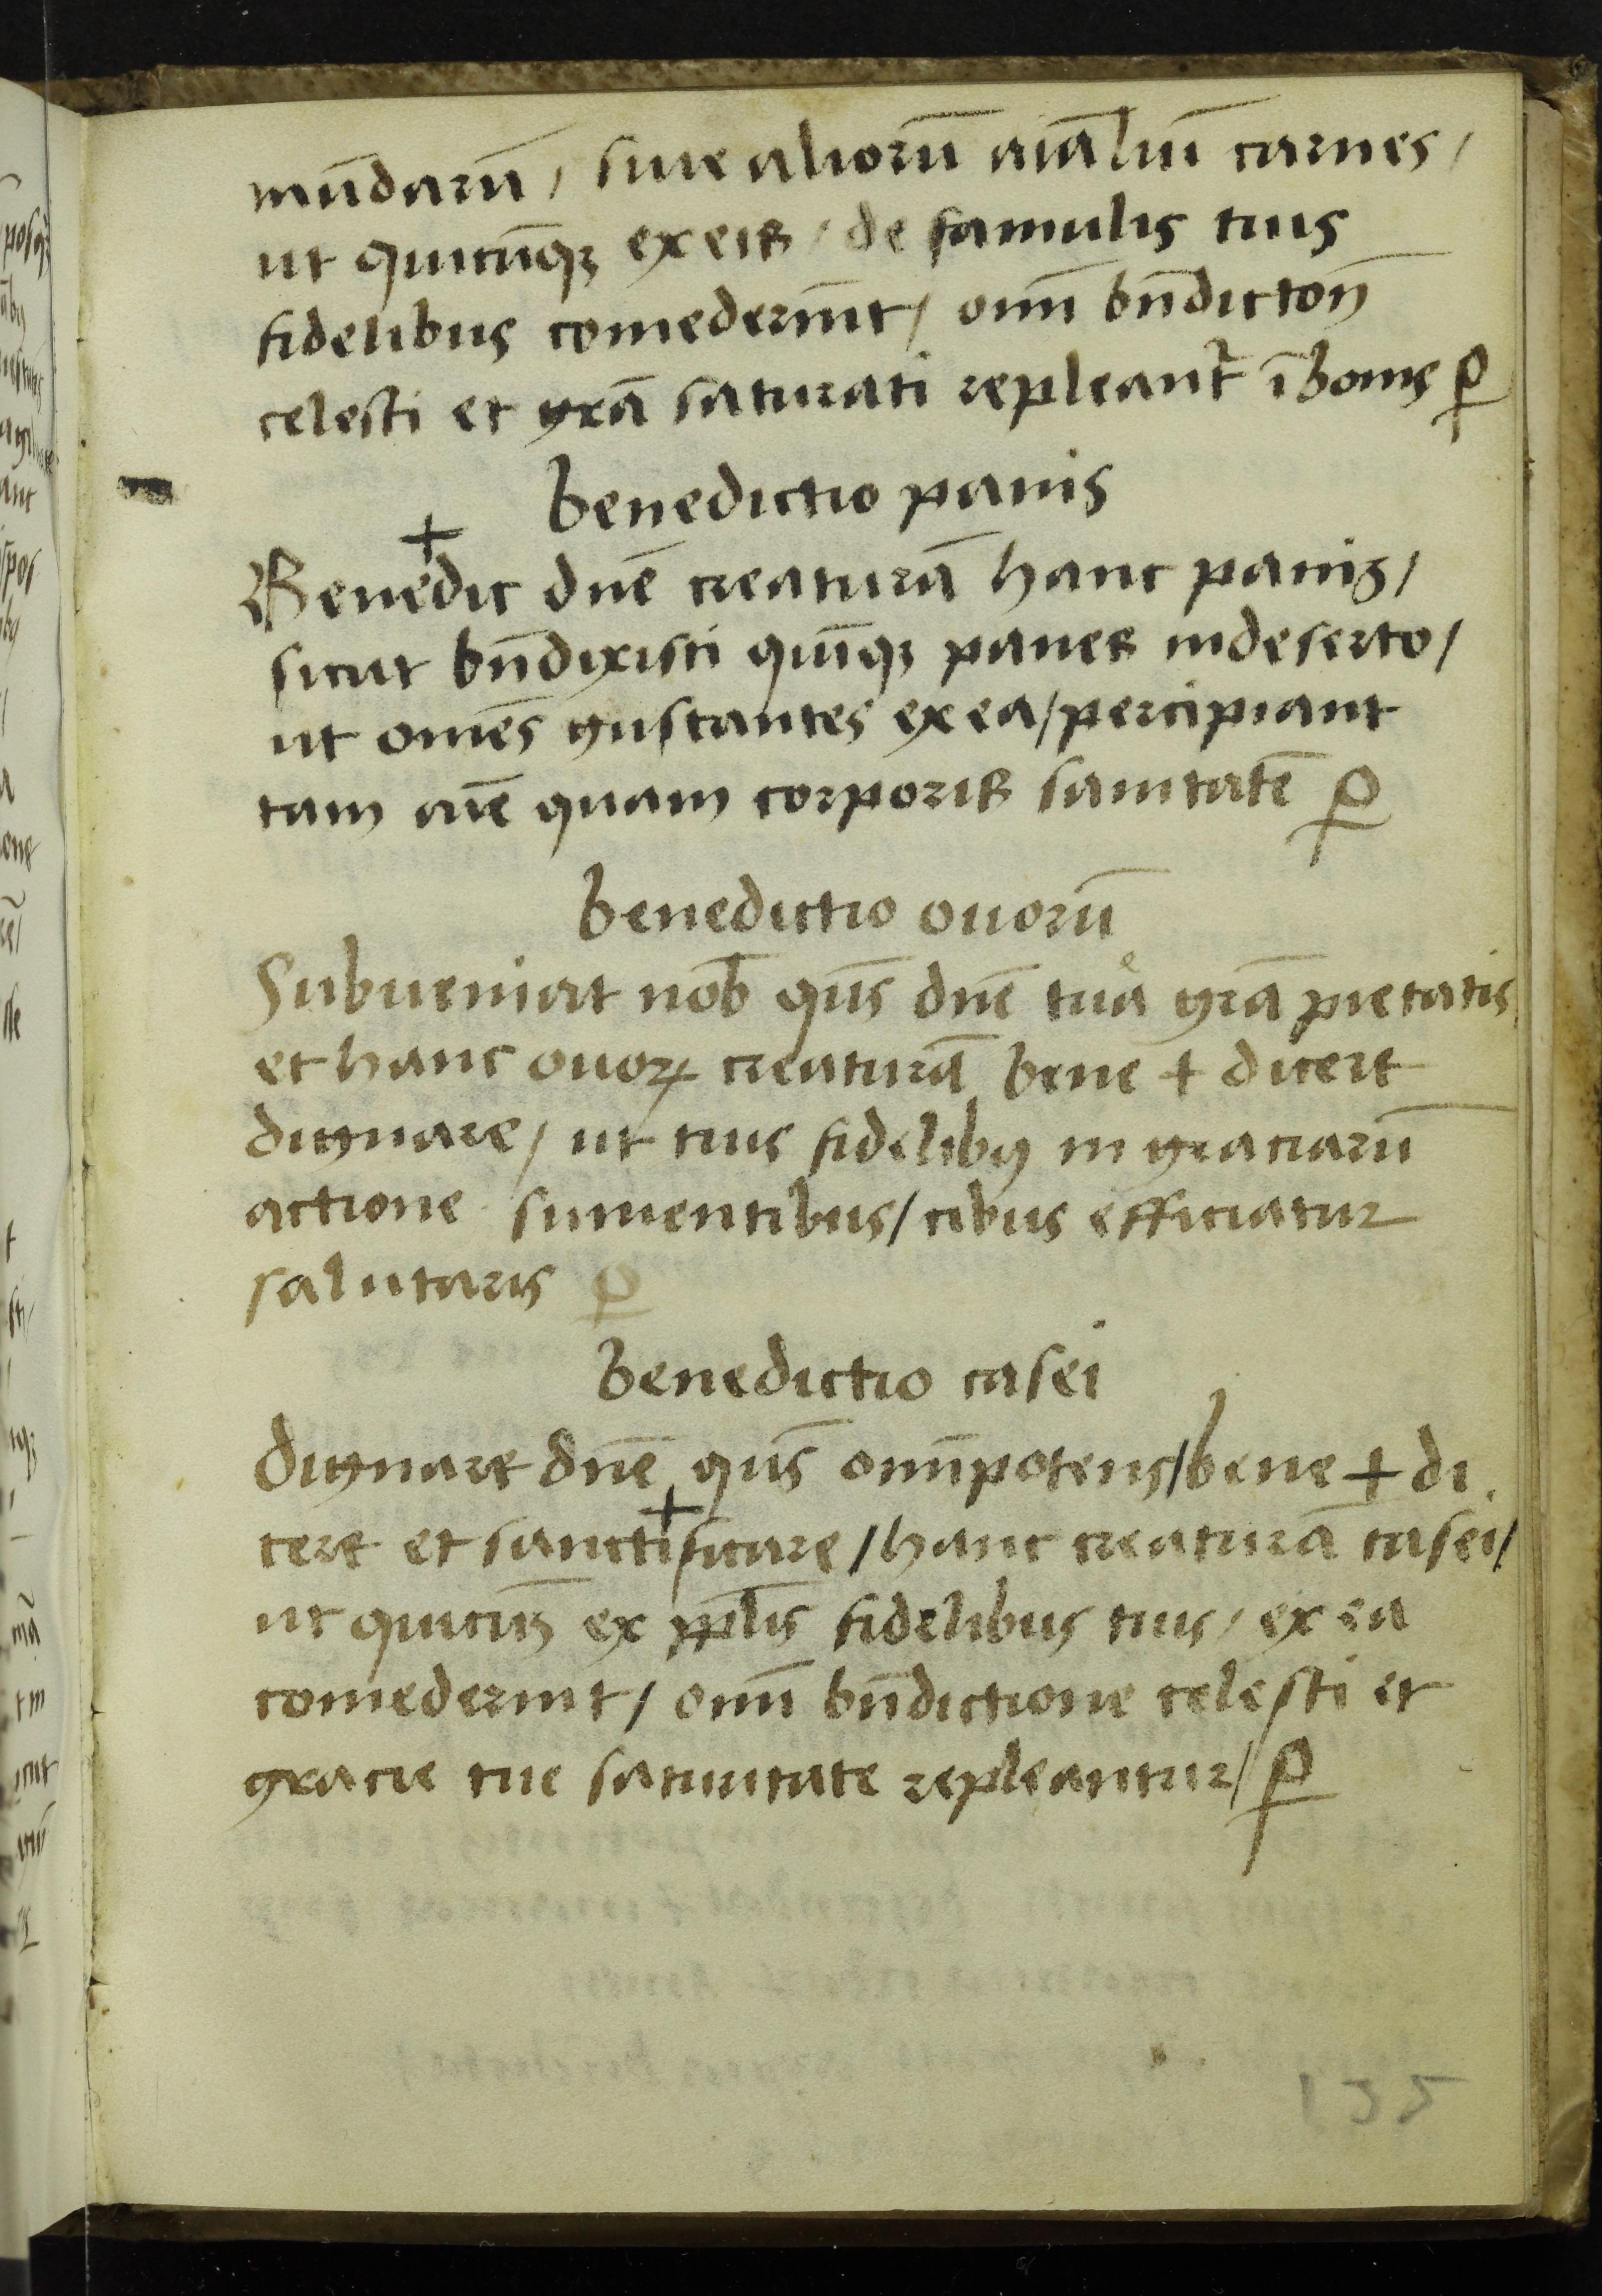 mūdarū / siue aliorū aīaliū carnes /
ut quicūqꝫ ex eis / de famulis tuis
fidelibus comederint / omī bn̄dictōn̄
celesti et gr̄a saturati repleant᷑ ī bonis ꝑ
Benedictio panis
+
Benedic dn̄e creaturā hanc panis /
sicut bn̄dixisti quīqꝫ panes in deserto /
ut omēs gustantes ex ea / percipiant
tam aīe quam corporis sanitatē ꝑ
Benedictio ouorū
Subueniat nob̄ qs̄ dn̄e tuę gr̄a pietatis
et hanc ouoꝝ creaturā bene + dicere
dignare / ut tuis fidelibꝰ in graciarū
actione sumentibus / cibus efficiatur
salutaris ꝑ
Benedictio casei
Dignare dn̄e qs̄ omīpotens / bene + di
+
cere et sanctificare / hanc creaturā casei /
ut quicūqꝫ ex pp̄lis fidelibus tuis / ex ea
comederint / omī bn̄dictione celesti et
gracie tue saturitate repleantur / ꝑ
135